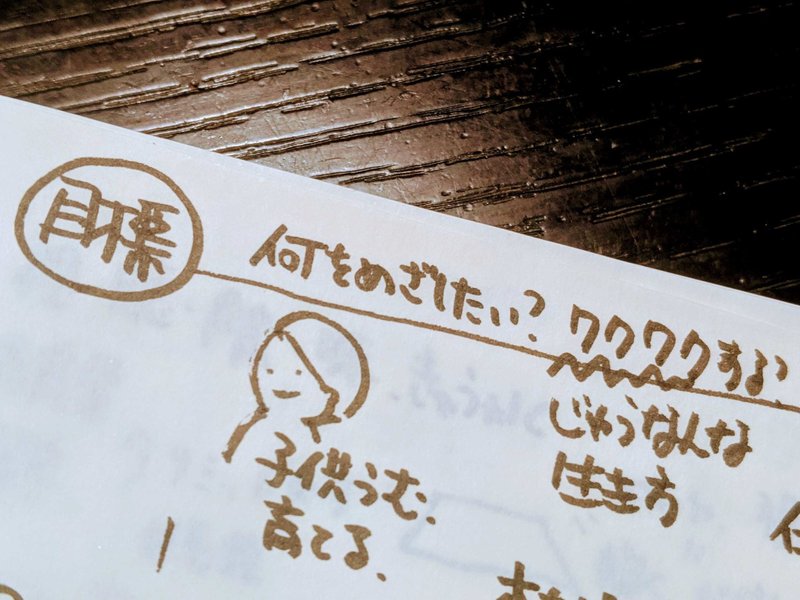 目標
何をめざしたい?
ワクワクする
じゅうなんな
はき方
子供うむ.
育てる.